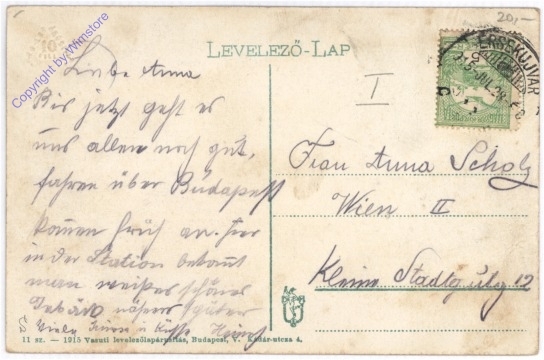 20,-
Copyright by: Wimstore
LEVELEZŐ-LAP
ÉRSEKÚJVÁR
I
Liebe Anna
Bis jetzt geht es
uns allen noch gut,
fahren über Budapest
kommen früh an. hier
in der Station bekommt
man weißes schönes
guter
Viele Küsse
Frau Anna Scholz
Wien II
Kleine Stadtgutg. 12
11 sz. — 1915 Vasuti levelezőlapárusitás, Budapest, V. Kádár-utcza 4.